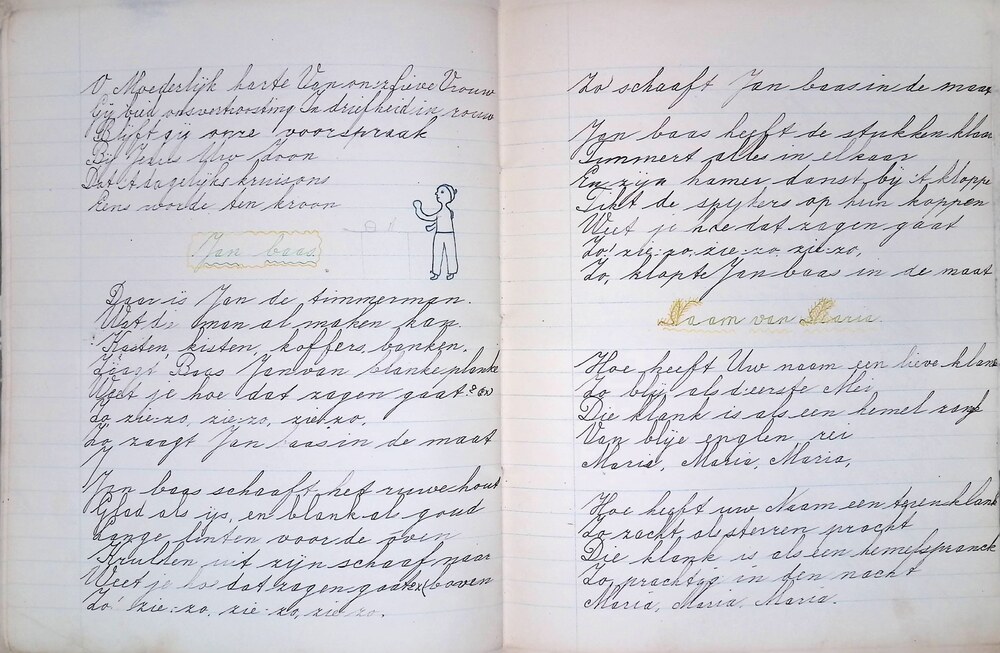 O Moederlijk harte Van onze lieve Vrouw
Gij bied ons vertroosting In driefheid in rouw
Blijft gij onze voorspraak
Bij Jezus Uw Zoon
Dat 't dagelijks kruis ons
Eens worde ten kroon
Jan baas
Daar is Jan de timmerman.
Wat die man al maken kan.
Kasten, kisten, koffers, banken.
Zaagt Baas Jan van blanke planke
Weet je hoe dat zagen gaat?
Zo, zie-zo, zie-zo, zie-zo.
Zo, zaagt Jan baas in de maat
Jan baas schaaft het ruwe hout
Glad als ijs, en blank al goud
Lange linten voor de oven
Krullen uit zijn schaaf naar
Weet je hoe dat zagen gaat (boven
Zo! zie-zo, zie-zo, zie zo.
Zo schaaft Jan baas in de maat
Jan baas heeft de stukken klaar
Timmert alles in elkaar
En zijn hamer danst bij 't kloppe
Tikt de spijkers op hun koppen
Weet je hoe dat zagen gaat
Zo! zie-zo, zie-zo, zie-zo,
Zo, klopte Jan baas in de maat
Naam van Maria
Hoe heeft Uw naam een lieve klank
Zo blij als d'eerste Mei
Die klank is als een hemel zang
Van blije englen rei
Maria, Maria, Maria,
Hoe heeft uw Naam een klank
Zo zacht als sterren pracht
Die klank is als een hemelspranck
Zo prachtig in den nacht
Maria, Maria, Maria.